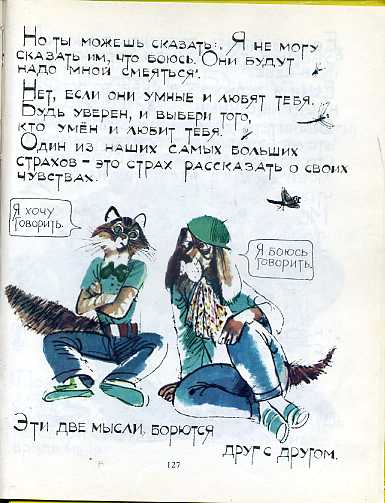 Но ты можешь сказать: „Я не могу
сказать им, что боюсь. Они будут
надо мной смеяться".
Нет, если они умные и любят тебя.
Будь уверен, и выбери того,
кто умён и любит тебя.
Один из наших самых больших
страхов – это страх рассказать о своих
чувствах.
Я хочу
говорить.
Я боюсь
говорить.
Эти две мысли борются
друг с другом.
127